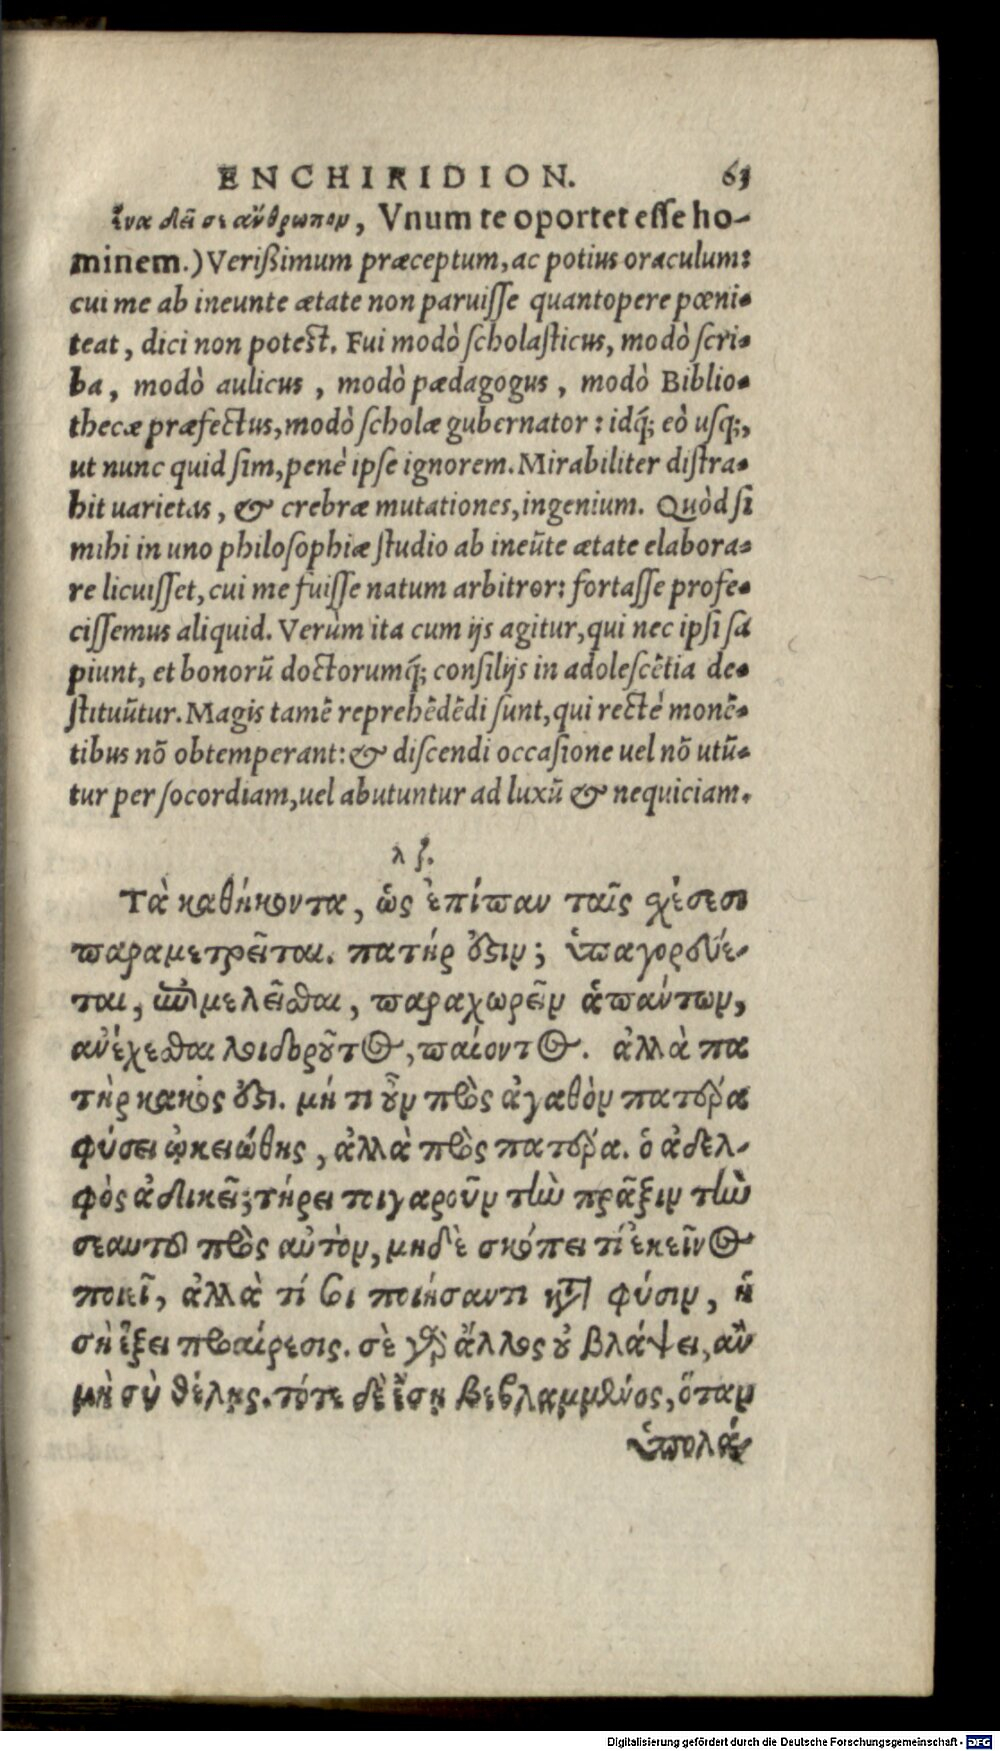 ENCHIRIDION. 63
ἕνα δεῖ σε ἄνθρωπον, Vnum te oportet esse ho-
minem.) Verißimum præceptum, ac potius oraculum:
cui me ab ineunte ætate non paruisse quantopere pœni-
teat, dici non potest. Fui modò scholasticus, modò scri-
ba, modò aulicus, modò pædagogus, modò Biblio-
thecæ præfectus, modò scholæ gubernator: idq́; eò usq;,
ut nunc quid sim, penè ipse ignorem. Mirabiliter distra-
hit uarietas, & crebræ mutationes, ingenium. Quòd si
mihi in uno philosophiæ studio ab ineūte ætate elabora-
re licuisset, cui me fuisse natum arbitror: fortasse profe-
cissemus aliquid. Verùm ita cum ijs agitur, qui nec ipsi sa
piunt, et bonorū doctorumq́; consilijs in adolescẽtia de-
stituūtur. Magis tamẽ reprehẽdẽdi sunt, qui rectè monẽ-
tibus nō obtemperant: & discendi occasione uel nō utū-
tur per socordiam, uel abutuntur ad luxū & nequiciam.
λζ.
Τὰ καθήκοντα, ὡς ἐπίπαν ταῖς χέσεσι
παραμετρεῖται. πατήρ ὅστιν; ὑπαγορεύε-
ται, ἐπιμελεῖσθαι, παραχωρεῖν ἁπάντων,
ἀνέχεσθαι λοιδοροῦντος, παίοντος. ἀλλὰ πα
τὴρ κακός ὅστι. μή τι οὖν πρὸς ἀγαθὸν πατέρα
φύσει ᾠκειώθης, ἀλλὰ πρὸς πατέρα. ὁ ἀδελ-
φὸς ἀδικεῖ; τήρει τοιγαροῦν τὴν πρᾶξιν τὴν
σεαυτοῦ πρὸς αὐτὸν, μηδὲ σκόπει τί ἐκεῖνος
ποιεῖ, ἀλλὰ τί σοι ποιήσαντι κατὰ φύσιν, ἡ
σὴ ἕξει προαίρεσις. σὲ γὰρ ἄλλος οὐ βλάψει, ἂν
μὴ σὺ θέλῃς. τότε δὲ ἔσῃ βεβλαμμένος, ὅταν
ὑπολά-
Digitalisierung gefördert durch die Deutsche Forschungsgemeinschaft - DFG